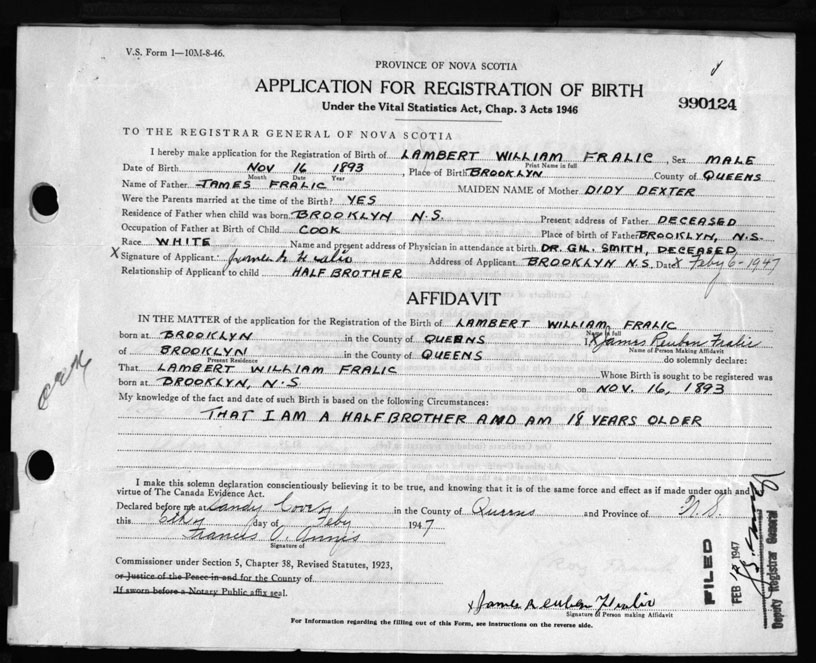 V.S. Form 1—10M-8-46.
PROVINCE OF NOVA SCOTIA
APPLICATION FOR REGISTRATION OF BIRTH
990124
Under the Vital Statistics Act, Chap. 3 Acts 1946
TO THE REGISTRAR GENERAL OF NOVA SCOTIA
I hereby make application for the Registration of Birth of LAMBERT WILLIAM FRALIC, Sex MALE
Print Name in full
Date of Birth NOV 16 1893, Place of Birth BROOKLYN County of QUEENS
Month Date Year
Name of Father JAMES FRALIC MAIDEN NAME of Mother DIDY DEXTER
Were the Parents married at the time of the Birth? YES
Residence of Father when child was born BROOKLYN N.S. Present address of Father DECEASED
Occupation of Father at Birth of Child COOK Place of birth of Father BROOKLYN, N.S.
Race WHITE Name and present address of Physician in attendance at birth DR. GIL. SMITH, DECEASED
X Signature of Applicant James R Fralic Address of Applicant BROOKLYN N.S. Date X Feby 6-1947
Relationship of Applicant to child HALF BROTHER
AFFIDAVIT
IN THE MATTER of the application for the Registration of the Birth of LAMBERT WILLIAM FRALIC
Name in full
born at BROOKLYN in the County of QUEENS I, X James Reuben Fralic
Name of Person Making Affidavit
of BROOKLYN in the County of QUEENS do solemnly declare:
Present Residence
That LAMBERT WILLIAM FRALIC Whose Birth is sought to be registered was
born at BROOKLYN, N.S on NOV. 16, 1893
My knowledge of the fact and date of such Birth is based on the following Circumstances:
THAT I AM A HALF BROTHER AND AM 18 YEARS OLDER
I make this solemn declaration conscientiously believing it to be true, and knowing that it is of the same force and effect as if made under oath and
virtue of The Canada Evidence Act.
Declared before me at Sandy Cove in the County of Queens and Province of N.S.
this 6th day of Feby 1947
Francis O. Annis
Signature of
Commissioner under Section 5, Chapter 38, Revised Statutes, 1923,
or Justice of the Peace in and for the County of
If sworn before a Notary Public affix seal.
x James Reuben Fralic
Signature of Person making Affidavit
For Information regarding the filling out of this Form, see instructions on the reverse side.
FILED
FEB 1947
Deputy Registrar General